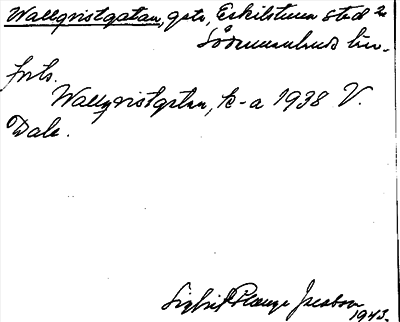 Wallqvistgatan, gata, Eskilstuna stad 2
Södermanlands län.
forts.
Wallqvistgatan, k-a 1938 V.
Dale.
Sigfrid Plange Jacobson
1943.